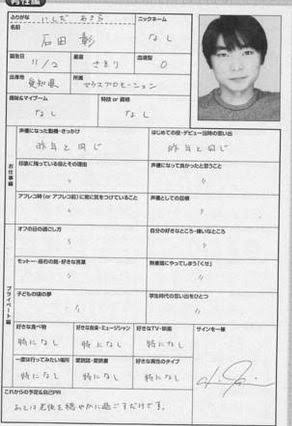 ふりがな いしだ あきら
ニックネーム
なし
名前
石田 彰
誕生日 星座 血液型
11/2 さそり O
出身地 所属
愛知県 マウスプロモーション
趣味&マイブーム 特技or資格
なし なし
お仕事編
声優になった動機・きっかけ はじめての役・デビュー当時の思い出
昨年と同じ 昨年と同じ
印象に残っている役とその理由 声優になって良かったと思うこと
〃 〃
アフレコ時(orアフレコ前)に常に気をつけていること 声優としての目標
〃 〃
プライベート編
オフの日の過ごし方 自分の好きなところ・嫌いなところ
〃 〃
モットー・座右の銘・好きな言葉 無意識にやってしまう「くせ」
〃 〃
子どもの頃の夢 学生時代の思い出をひとつ
〃 〃
好きな食べ物 好きな音楽・ミュージシャン 好きなTV・映画 サインを一筆
特になし 特になし 特になし
一度は行ってみたい場所 愛読誌・愛読書 好きな異性のタイプ
特になし 特になし 特になし
これからの予定&自己PR
あとは老後を穏やかに過ごすだけです。